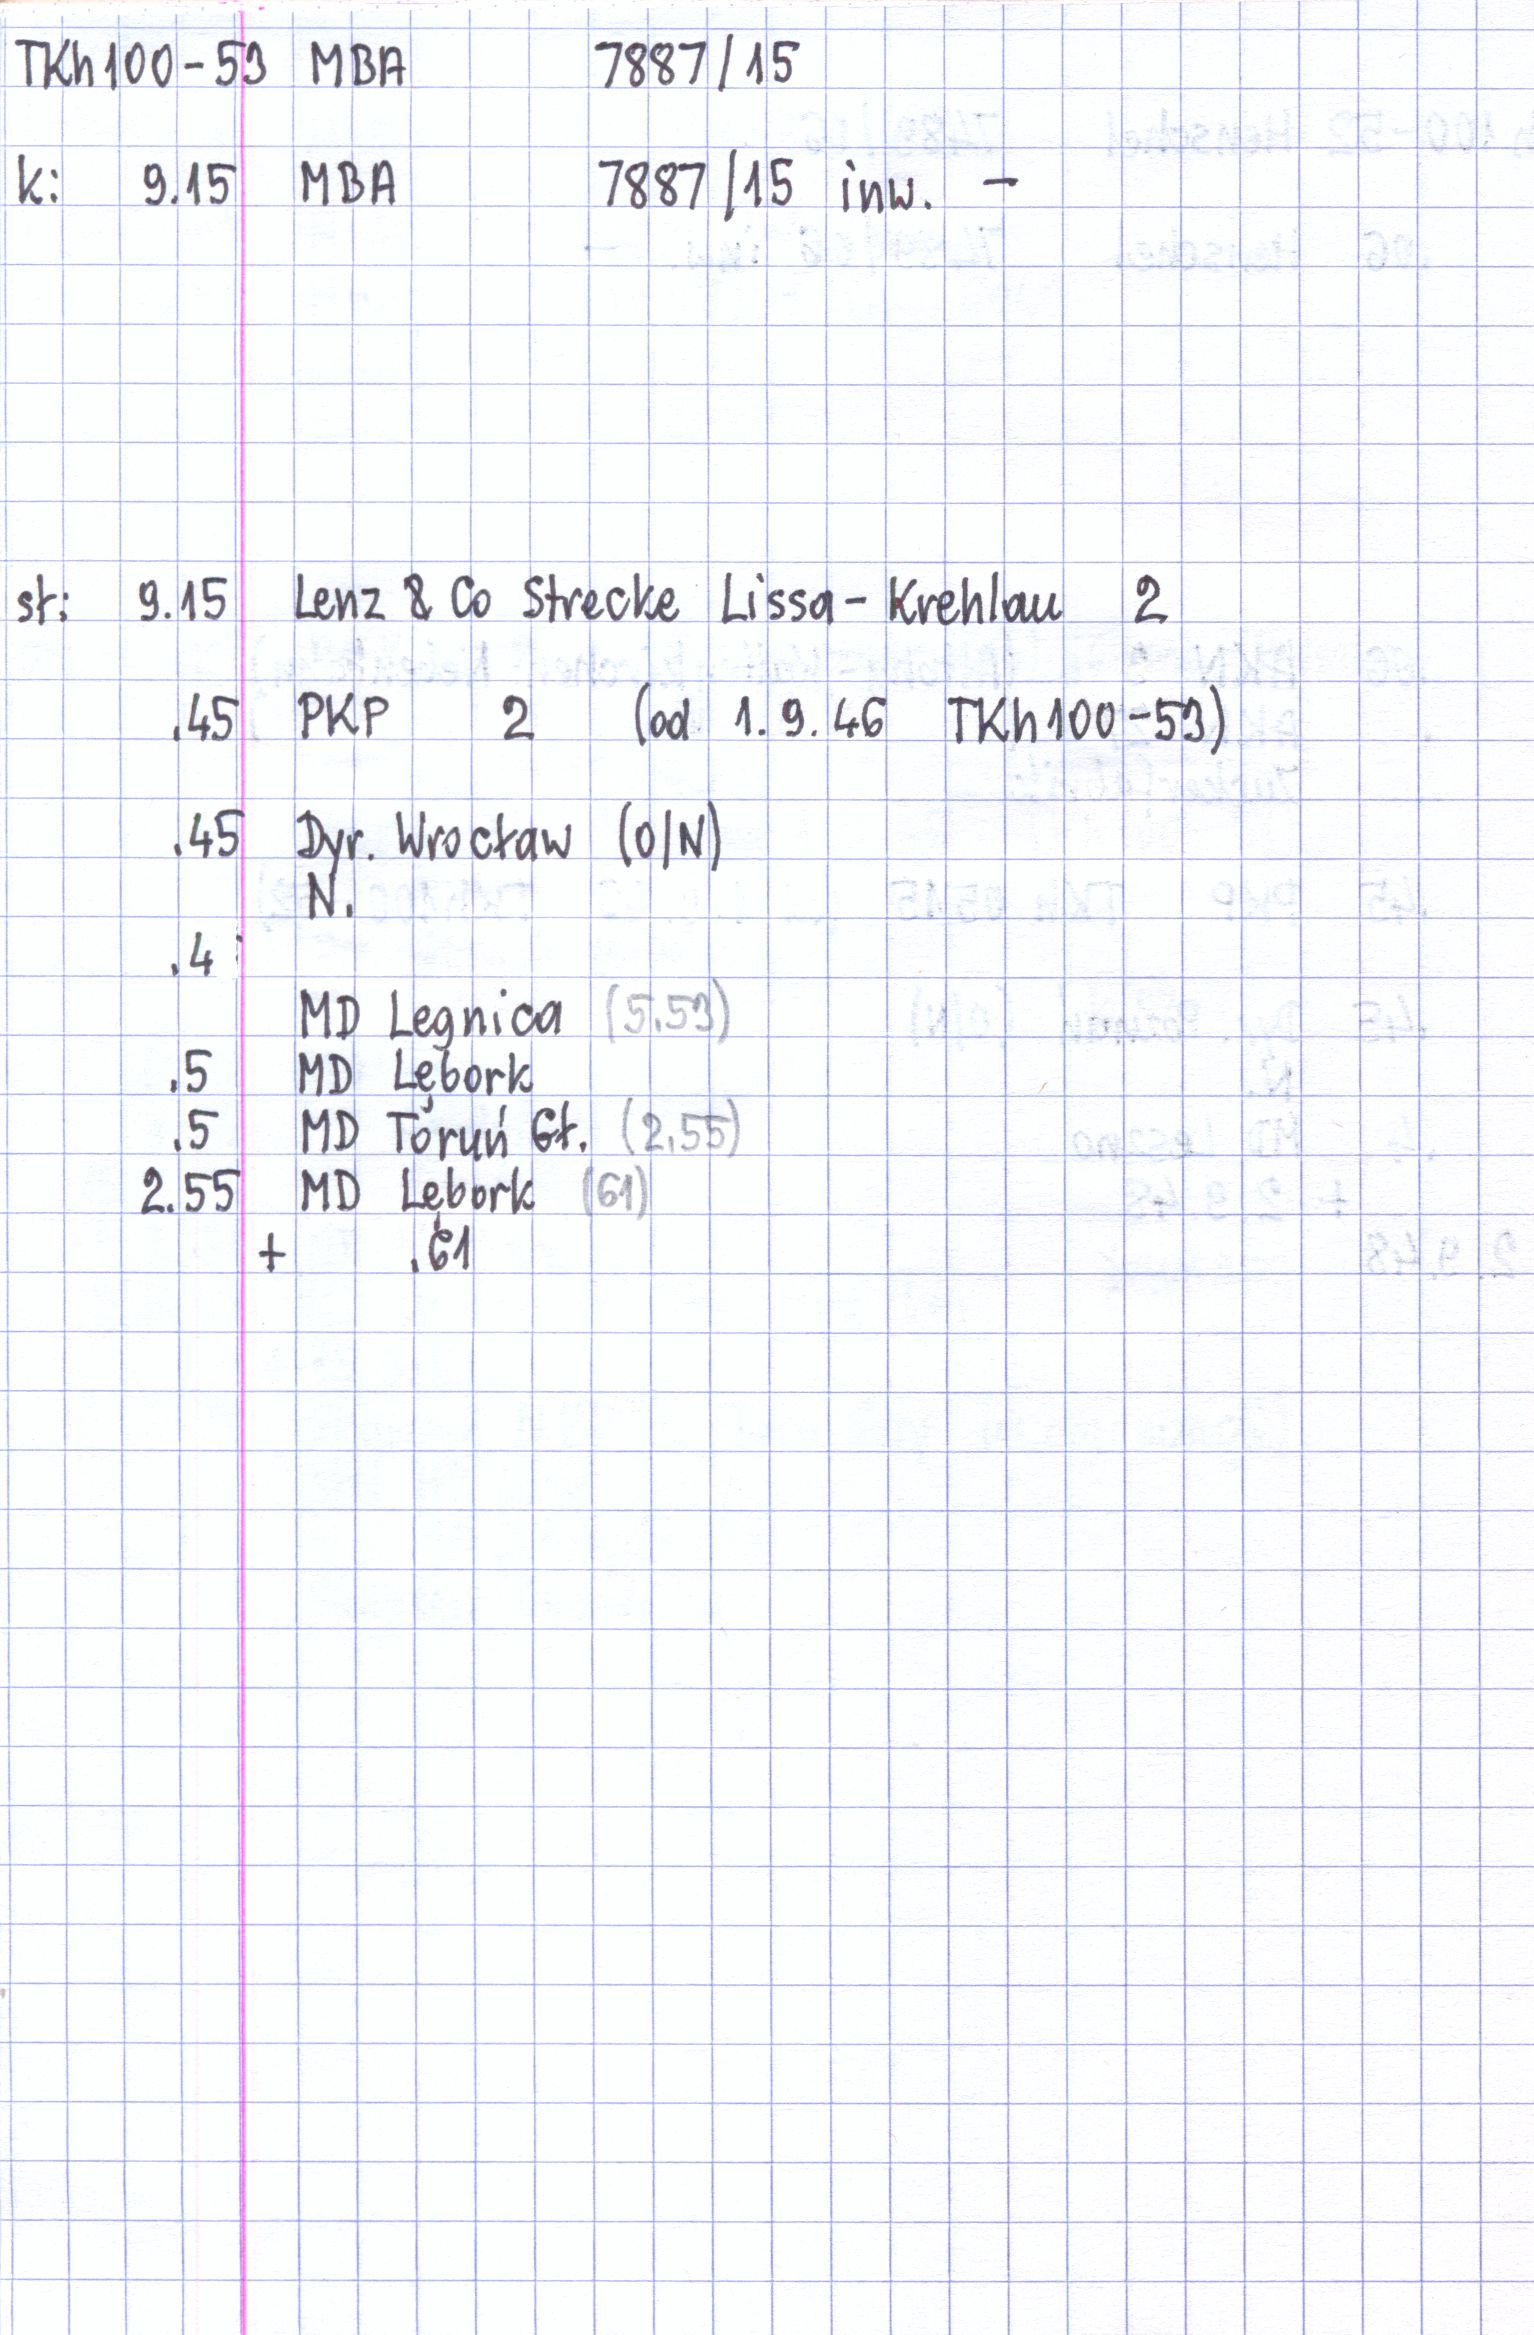 TKh100-53 MBA 7887/15
k: 9.15 MBA 7887/15 inw. -
st: 9.15 Lenz & Co Strecke Lissa-Krehlau 2
.45 PKP 2 (od 1.9.46 TKh100-53)
.45 Dyr. Wrocław (O/N)
N.
.4
MD Legnica (5.53)
.5 MD Lębork
.5 MD Toruń Gł. (2.55)
2.55 MD Lębork (61)
+ .61